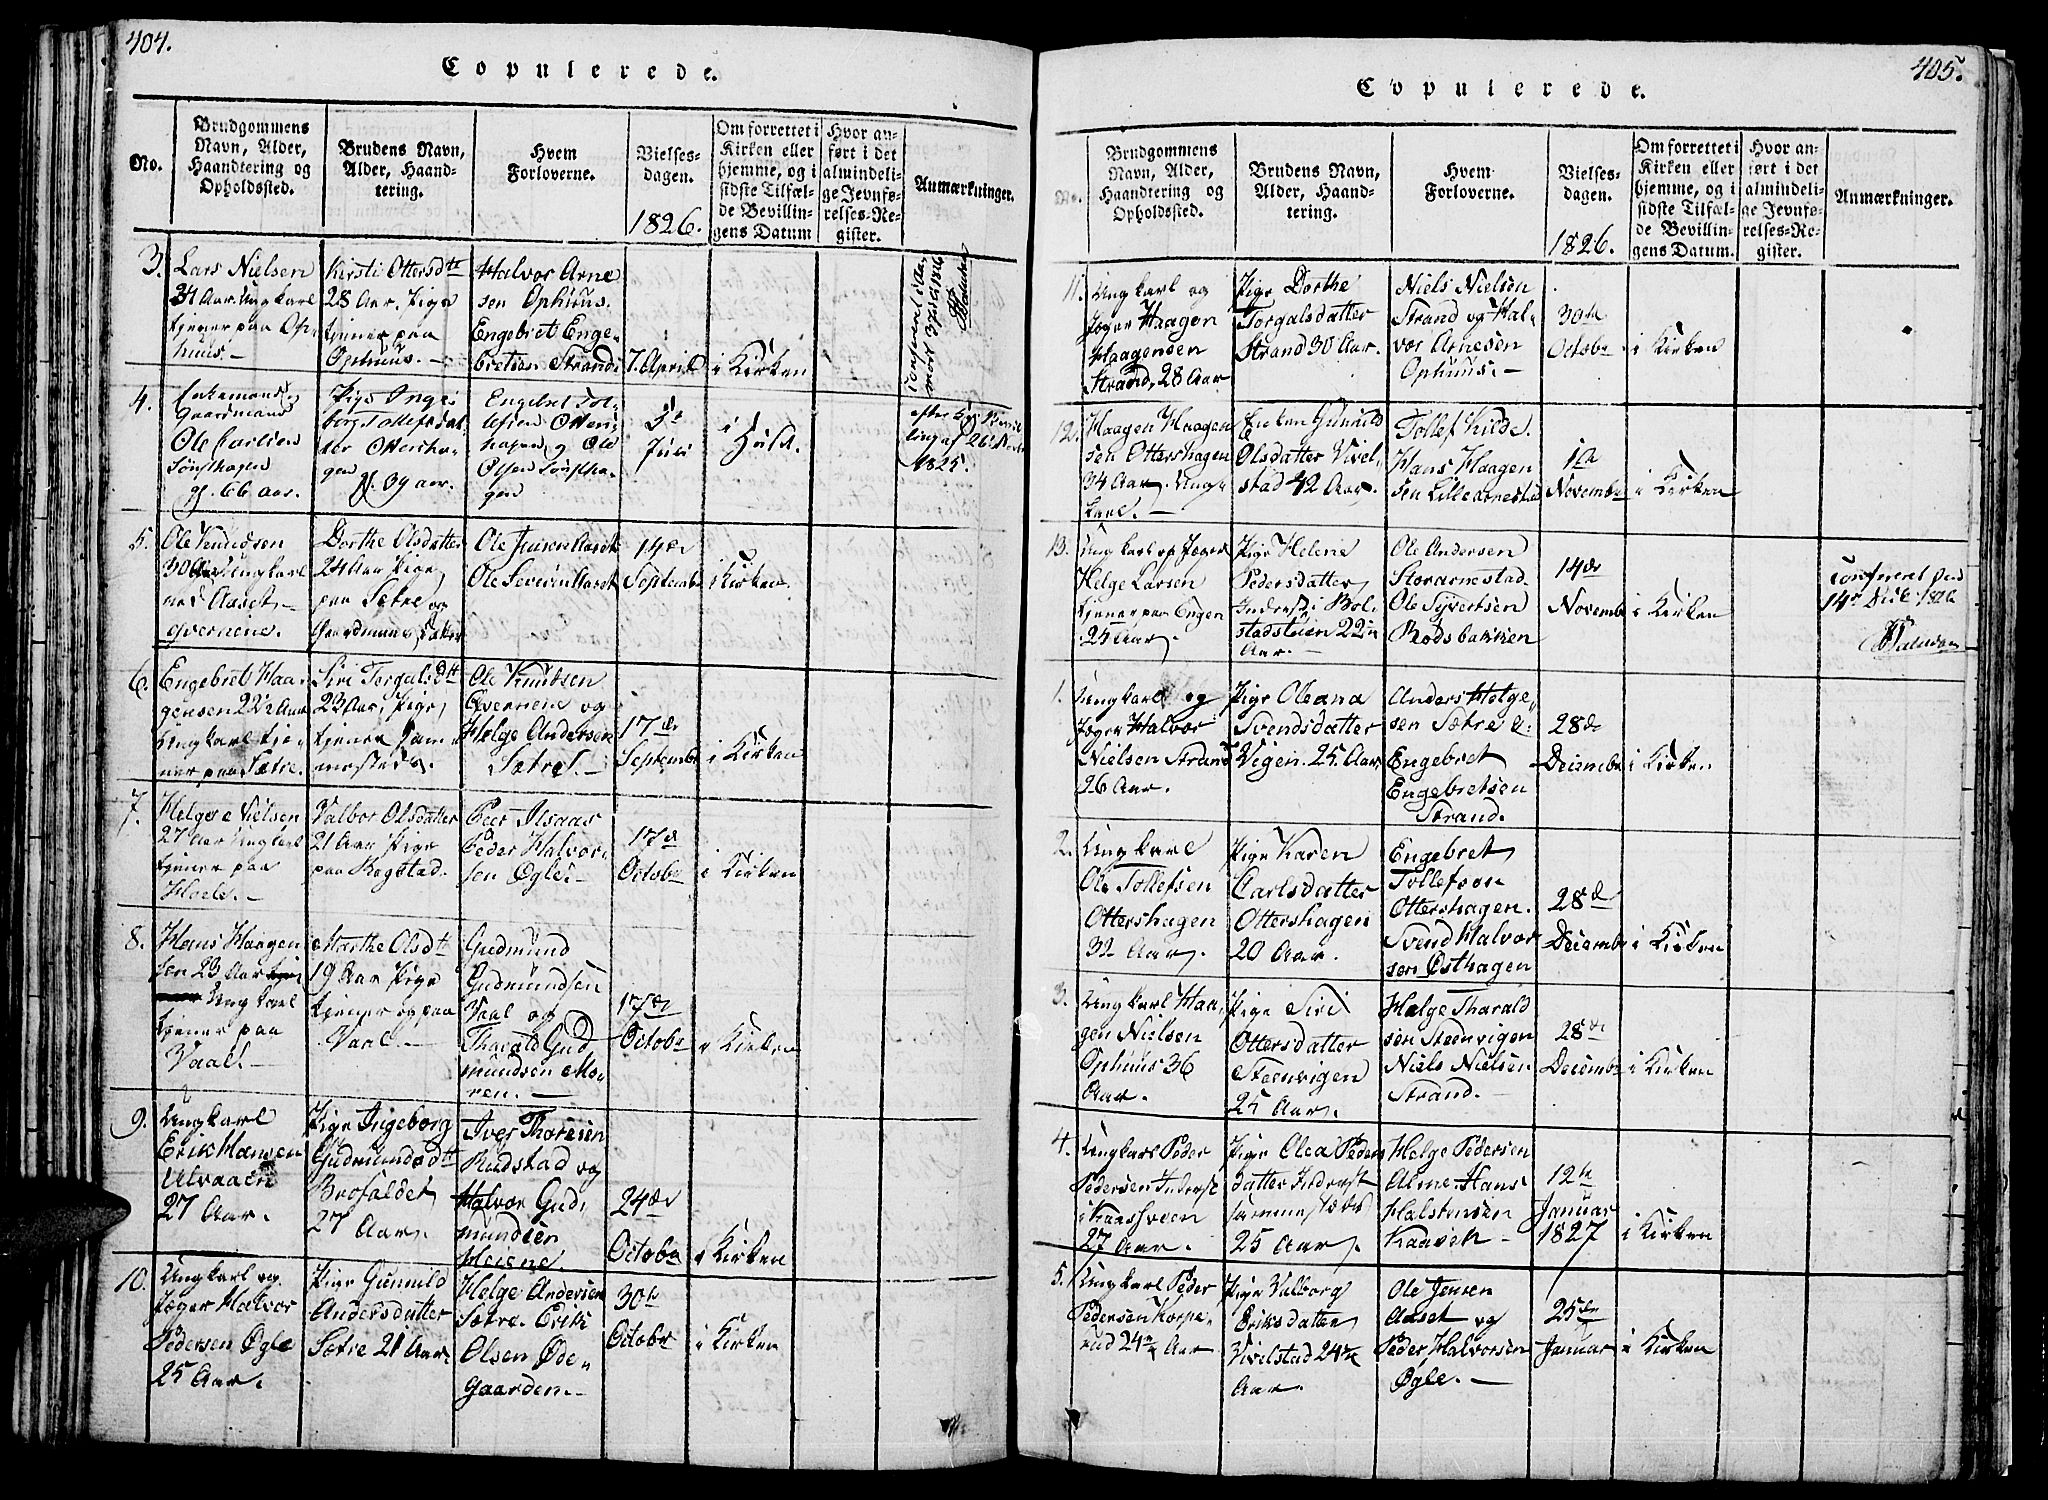 404.
Copulerede.
No.
Brudgommens
Navn, Alder,
Haandtering og
Opholdssted.
Brudens Navn,
Alder, Haand-
tering.
Hvem
Forloverne.
Vielses-
dagen.
1826.
Om forrettet i
Kirken eller
hjemme, og i
sidste Tilfæl-
de Bevillin-
gens Datum
Hvor an-
ført i det
almindeli-
ge Jevnfø-
relses-Re-
gister.
Anmærkninger.
3.
Lars Nielsen
34 Aar. Ungkarl
tjener paa Op-
huus.-
Kirsti Ottersdtt
28 Aar. Pige
tjener paa
Ophuus.-
Halvor Arne
sen Ophuus.
Engebret Enge-
bretsen Strand
7. April
i Kirken
4.
Enkemand og
Gaardmand
Ole Carlsen
gl. 66 aar.
Pige Inge-
borg Tollefsdat-
ter Ottersha-
gen
gl. 39 aar.
Engebret Tol-
lefsen Otters-
hagen og Ole
Olsen
gen
5t
Juli
i
1825.
5.
Ole Knudsen
30 Aar Ungkarl
ved Aaset
qvernene.
Dorthe Olsdatter
24 Aar Pige
paa Sætre og
Gaardmands
Ole Jensen Aaset
Ole Seversen Aaset
14de
September
i Kirken.
6.
Engebret Haa-
gensen 22½ Aar
Ungkarl tje-
ner paa Sætre.
Siri Torgalsdtt
23 Aar, Pige
tjener sam-
mesteds.
Ole Knudsen
Qvernene og
Helge Andersen
Sætre.-
17de
September
i Kirken
7.
Helge Nielsen
27 Aar Ungkarl
tjener paa
Hoele.-
Valbor Olsdatter
21 Aar Pige
paa Rogstad.
Peer Isaas
Peder Halvor-
sen Øgle.-
17de
October
i Kirken
8.
Hans Haagen
sen 23 Aar
Ungkarl
tjener paa
Vaal.-
Marthe Olsdtt
19 Aar Pige
tjener og paa
Vaal.-
Gudmund
Gudmundsen
Vaal og
Tharald Gud
mundsen Mo-
ren.-
17de
October
i Kirken
9.
Ungkarl
Erik Hansen
Ulvaaen
27 Aar.
Pige Ingeborg
Gudmundsdtt
Brofaldet
27 Aar.
Iver Thoresen
Rudstad og
Halvor Gud-
mundsen
Meiene.
24de
October
i Kirken
10.
Ungkarl og
Jæger Halvor
Pedersen Øgle
25 Aar.
Pige Gunnild
Andersdatter
Sætre 21 Aar.
Helge Andersen
Sætre. Erik
Olsen Øde-
gaarden.-
30te
October
i Kirken
405.
Copulerede.
No.
Brudgommens
Navn, Alder,
Haandtering og
Opholdssted.
Brudens Navn,
Alder, Haand-
tering.
Hvem
Forloverne.
Vielses-
dagen.
1826.
Om forrettet i
Kirken eller
hjemme, og i
sidste Tilfæl-
de Bevillin-
gens Datum.
Hvor an-
ført i det
almindeli-
ge Jevnfø-
relses-Re-
gister.
Anmærkninger.
11.
Ungkarl og
Jæger Haagen
Haagensen
Strand, 28 Aar
Pige Dorthe
Torgalsdatter
Strand 30 Aar.
Niels Nielsen
Strand og Hal-
vor Arnesen
Ophuus.-
30te
October
i Kirken
12.
Haagen Haagen
sen Ottershagen
34 Aar. Ung-
karl.-
Enken Gunnild
Olsdatter Vivel-
stad 42 Aar.
Tollef Kilde.
Hans Haagen
sen Lillearnestad
1te
November
i Kirken
13.
Ungkarl og Jæger
Helge Larsen
tjener paa Engen
25 Aar.
Pige Helene
Pedersdatter
Inderst i Bol-
stadsteien 22½
Aar.-
Ole Andersen
Storarnestad
Ole Syvertsen
Rodsbakken
14de
November
i Kirken
Confereret den
14de Dec. 1826
1.
Ungkarl og
Jæger Halvor
Nielsen Strand
26 Aar.
Pige Oleana
Svendsdatter
Vigen. 25 Aar.
Anders Helge-
sen Sætre &
Engebret
Engebretsen
Strand.
28de
December
i Kirken
2.
Ungkarl
Ole Tollefsen
Ottershagen
32 Aar.
Pige Karen
Carlsdatter
Ottershagen
20 Aar.
Engebret
Tollefsen
Ottershagen.
Svend Halvor
sen Østhagen
28de
December
i Kirken
3.
Ungkarl Haa-
gen Nielsen
Ophuus 36
Aar.
Pige Siri
Ottersdatter
Steenvigen
25 Aar.
Helge Tharald
sen Steenvigen
Niels Nielsen
Strand.-
28de
December
i Kirken
4.
Ungkarl Peder
Pedersen Inderst
i Kaashveen
27 Aar.
Pige Olea Peders
datter Inderst
sammesteds
25 Aar.
Helge Pedersen
Arne. Hans
Halstensen
12te
Januar
1827
i Kirken
5.
Ungkarl Peder
Pedersen Korpe-
rud 24½ Aar
Pige Valborg
Eriksdatter
Vivelstad 24¼
Aar.
Ole Jensen
Aaset og
Peder Halvorsen
Øgle.-
25de
Januar
i Kirken